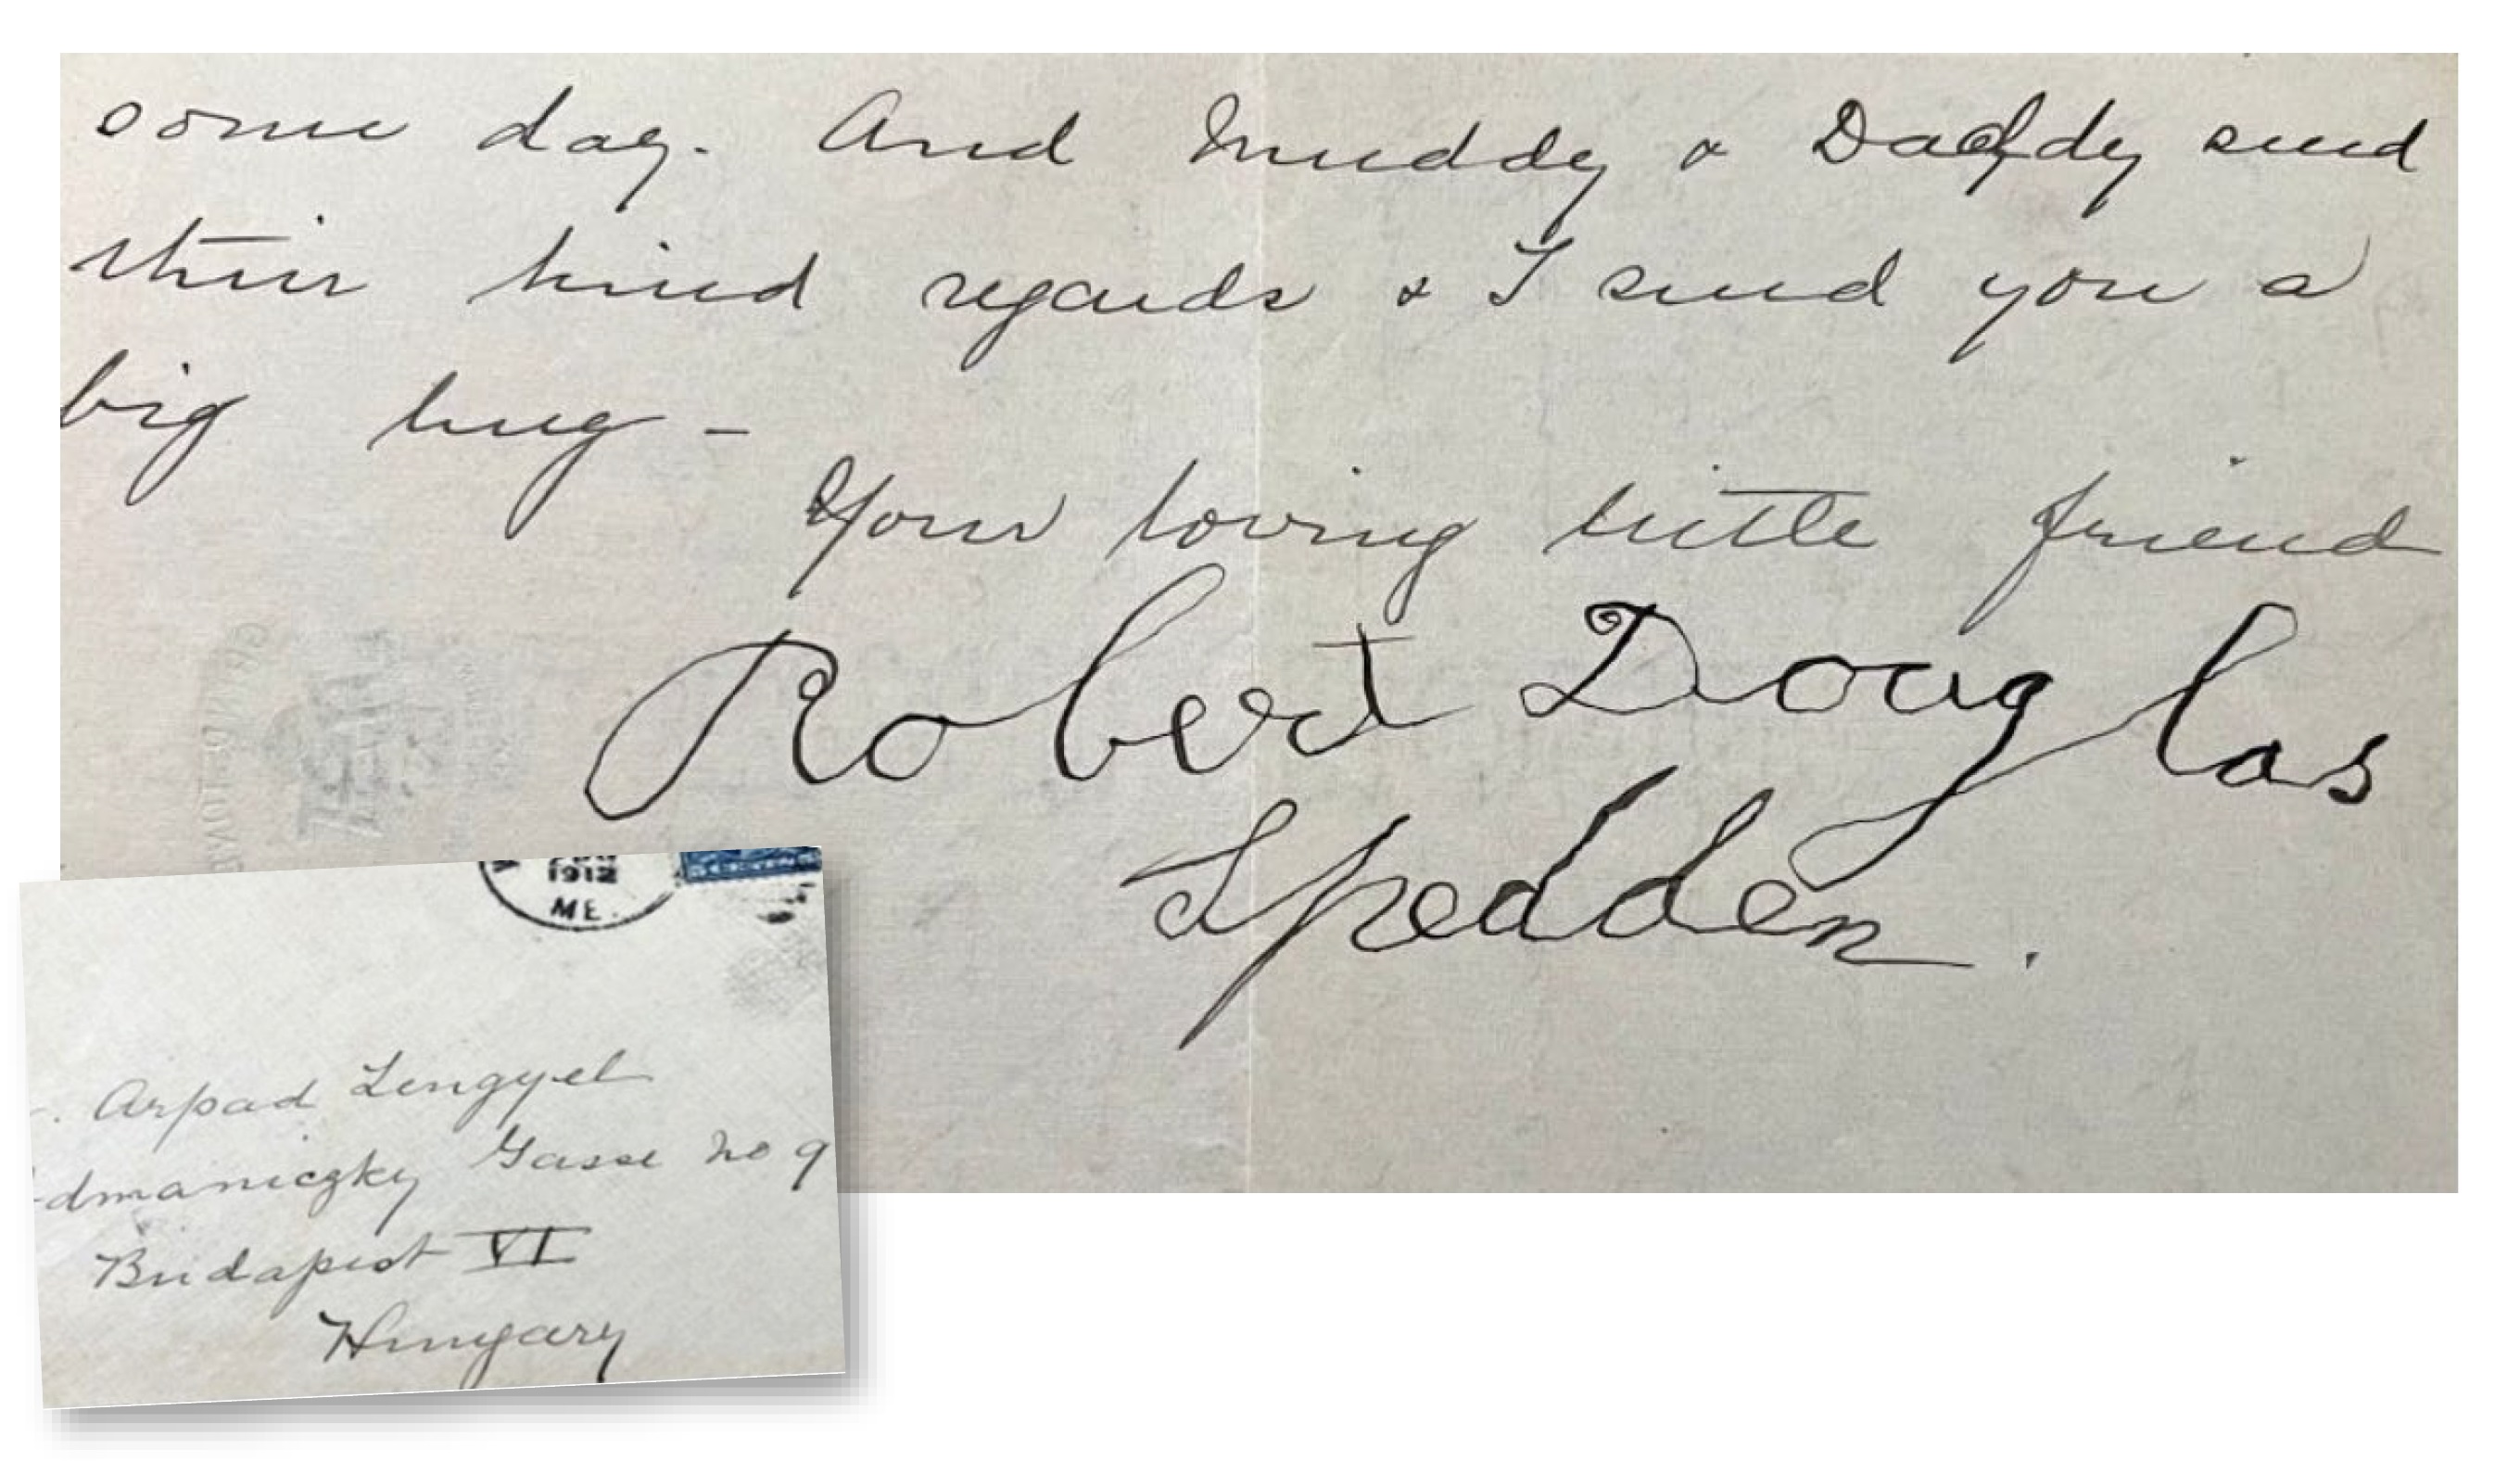 some day. And Muddy & Daddy send
their kind regards & I send you a
big hug –
Your loving little friend
Robert Douglas
Spedden.
1912
ME.
Arpad Lengyel
dmaniczky Gasse No 9
Budapest VI
Hungary